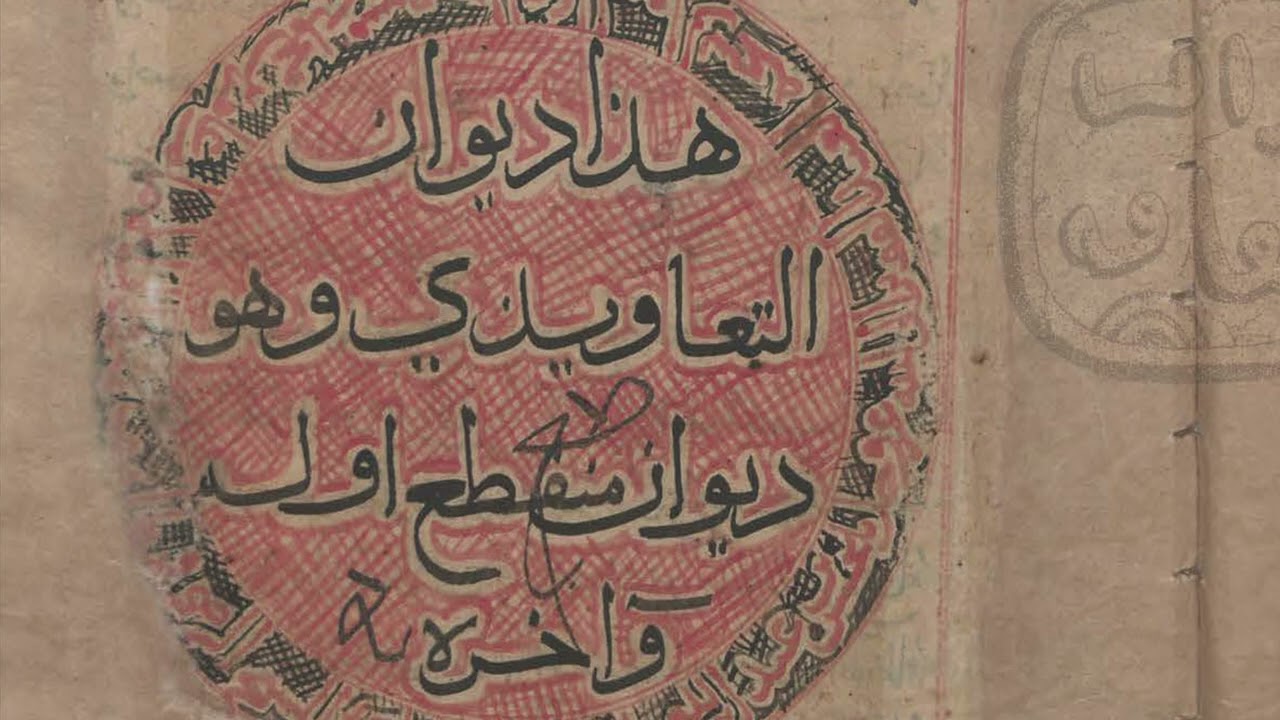 هذا ديوان
التعاويذي وهو
ديوان منقطع اوله
وآخره